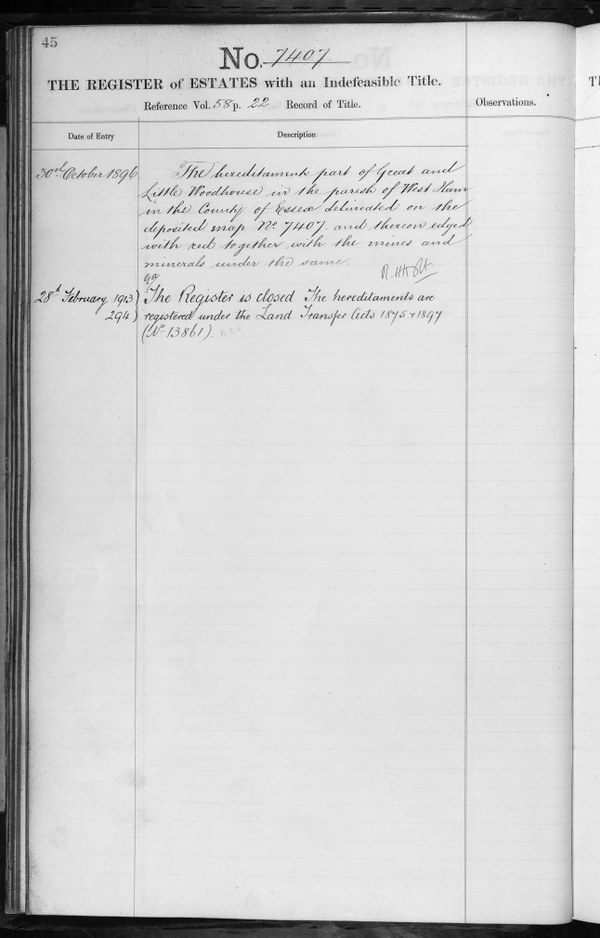 45
No. 7407.
THE REGISTER of ESTATES with an Indefeasible Title.
Reference Vol. 58 p. 22 Record of Title.
Observations.
Date of Entry
Description
30th October 1896
The hereditament part of Great and
Little Woodhouse in the parish of West Ham
in the County of Essex delineated on the
deposited map No. 7407. and thereon edged
with red together with the mines and
minerals under the same.
28th February 1903
294
The Register is closed The hereditaments are
registered under the Land Transfer Acts 1875 & 1897
(No 13861).